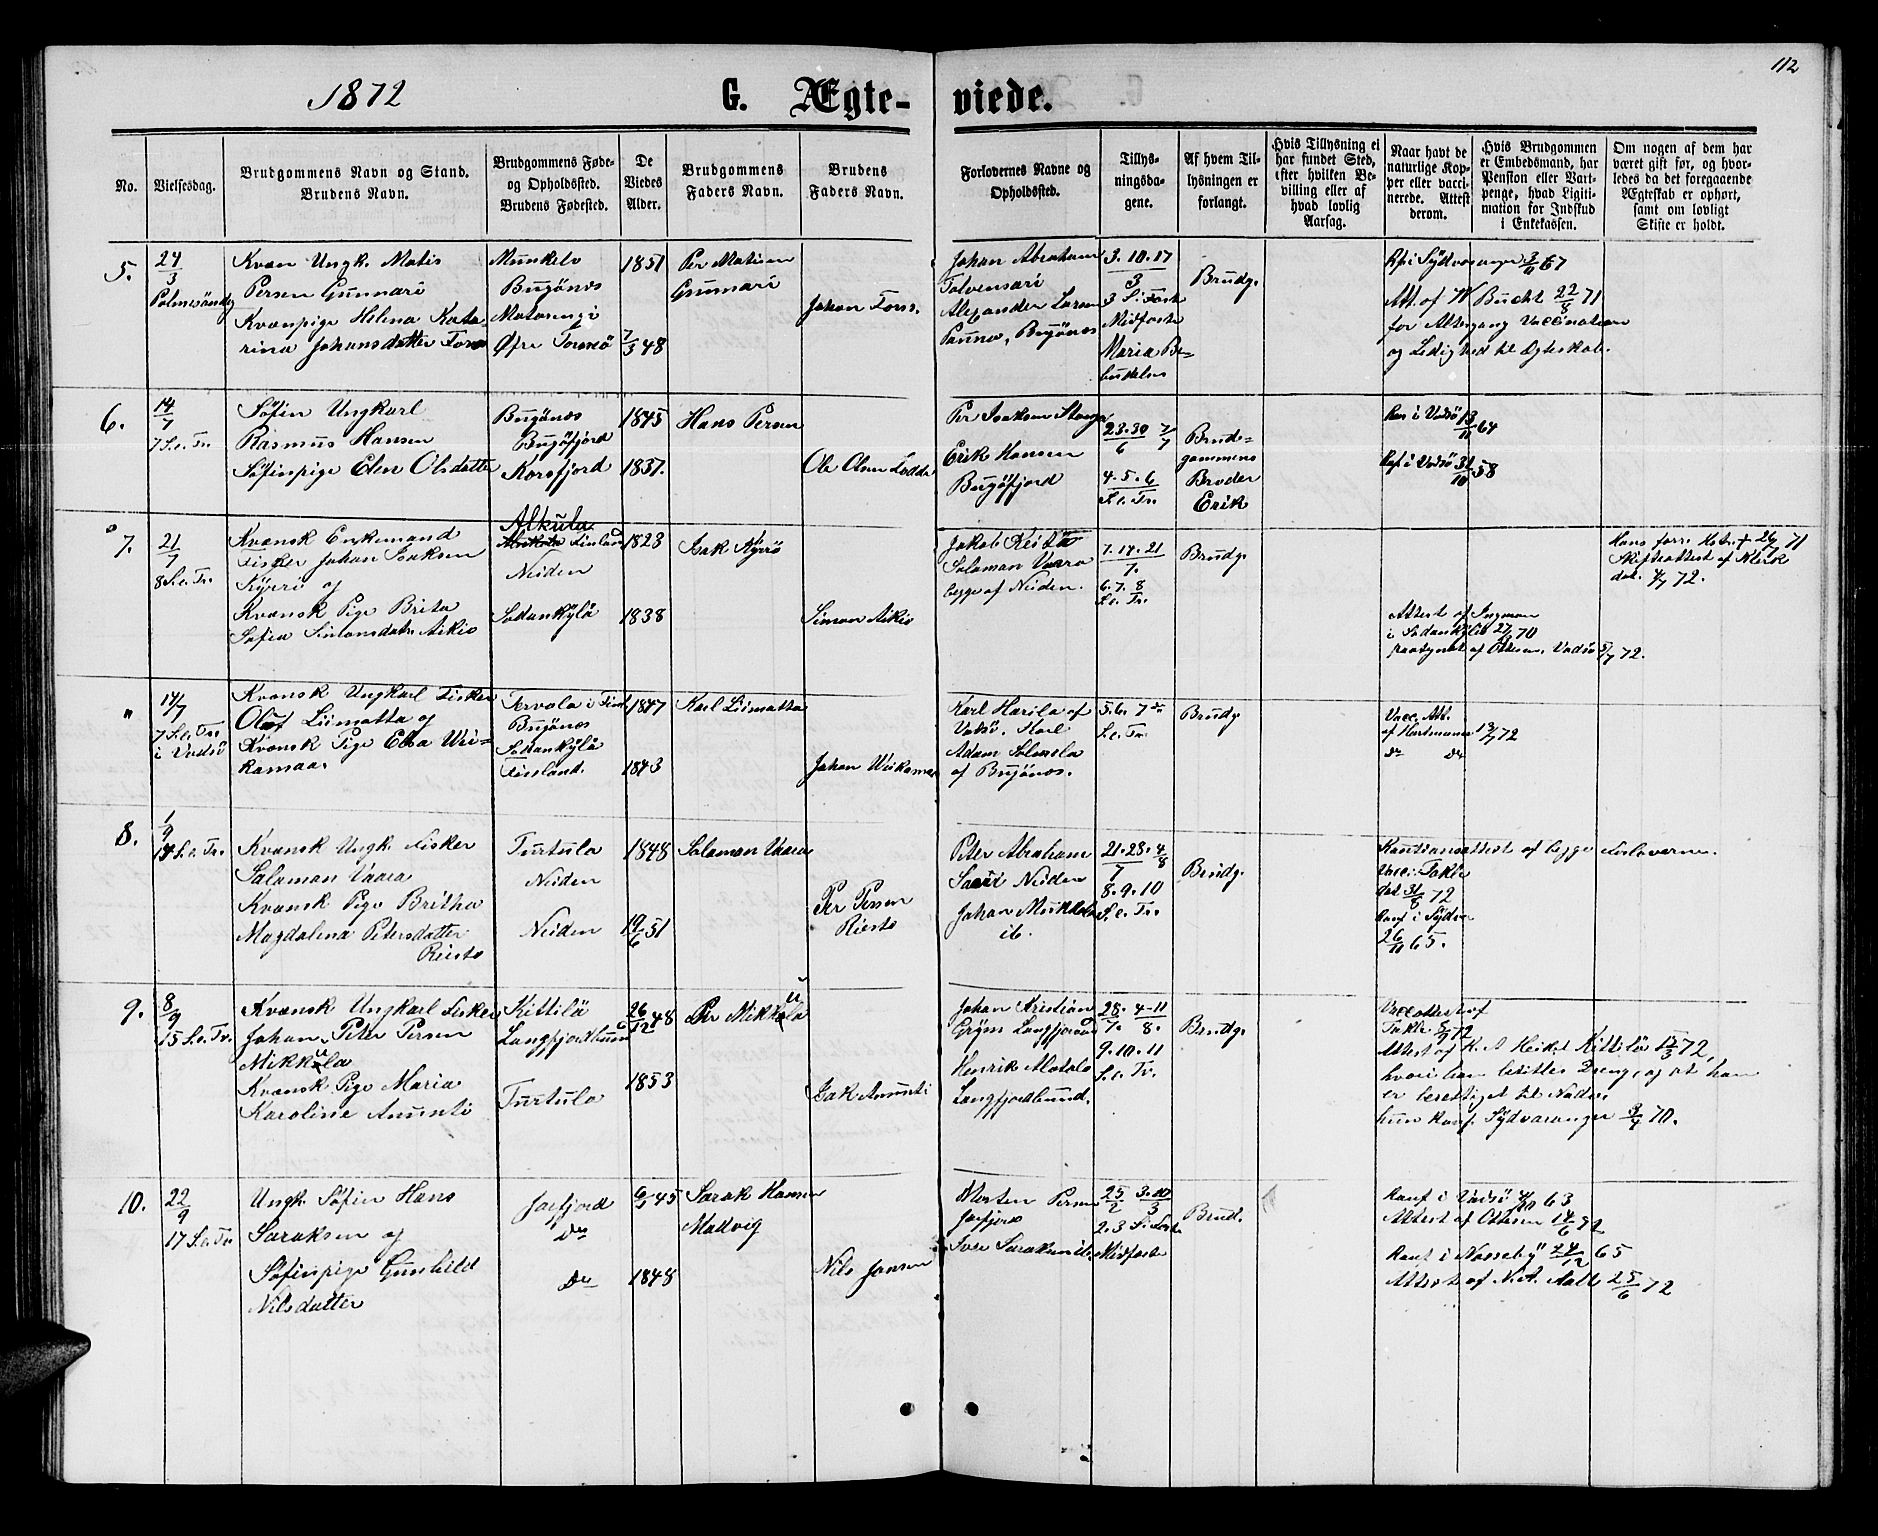 1872
G. Ægte-
viede.
112
No.
Vielsesdag.
Brudgommens Navn og Stand.
Brudens Navn.
Brudgommens Føde-
og Opholdssted.
Brudens Fødested.
De
Viedes
Alder.
Brudgommens
Faders Navn.
Brudens
Faders Navn.
Forlovernes Navne og
Opholdssted.
Tillys-
ningsda-
gene.
Af hvem Til-
lysningen er
forlangt.
Hvis Tillysning ei
har fundet Sted,
efter hvilken Be-
villing eller af
hvad lovlig
Aarsag.
Naar havt de
naturlige Kop-
per eller vacci-
nerede. Attest
derom.
Hvis Brudgommen
er Embedsmand, har
Pension eller Vart-
penge, hvad Ligiti-
mation for Indskud
i Enkekassen.
Om nogen af dem har
været gift før, og hvor-
ledes da det foregaaende
Ægteskab er ophørt,
samt om lovligt
Skifte er holdt.
5.
24/3
Palmesøndg
Kvæn Ungk. Matis
Persen Gunnari
Kvænpige Helena Kata-
rina Johansdatter
Munkelv
Bugönæs
Matarengi
Øfre Torneö
1851
7/3 48
Per Matisen
Gunnari
Johan
Johan Abraham
Tolvensari
Alexander Larsen
Panna, Bugönæs
3. 10. 17
3
3 S. i Faste
Midfaste
Maria Be-
budelse
Brudg.
Att. af W Bucht 22/8 71
for Altergang Vaccination
og Ledighed til Ægteskab.
6.
14/7
7 S. e. Tr.
Söfin Ungkarl
Rasmus Hansen
Söfinpige Elen Olsdatter
Bugönæs
Bugöfjord
Korsfjord
1845
1837.
Hans Persen
Ole Olsen
Per Isaksen
Erik Hansen
Bugöfjord
23. 30 7/7
6
4. 5. 6
S. e. Tr.
Brud-
gommens
Broder
Erik
i Vadsö 13/11 64
i Vadsö 31/10 58
7.
21/7
8 S. e. Tr.
Kvænsk Enkemand
Fisker Johan Isaksen
Kyrö og
Kvænsk Pige Brita
Sofia Simonsdatr Aikio
Alkula
Finland
Neiden
Sodankylä
1823
1838
Isak Kyrö
Simon Aikio
Jakob
Salamon Vaara
begge af Neiden.
7. 14. 21
7.
6. 7. 8
S. e. Tr.
Brudg.
Hans forr. Hstr. † 26/7 71
Skifteattest af Klerk
dat. 4/7 72.
Attest af Ingman
i Sodankylä 70
paategnet af Ottesen, Vadsö 5/7 72.
"
14/7
7 S. e. Tr.
i Vadsö
Kvænsk Ungkarl Fisker
Olof Liimatta og
Kvænsk Pige Elsa Uri-
kamaa.
Tervola i Finl.
Bugönæs
Sodankylä
Finland.
1847
1843
Karl Liimatta
Johan
Karl Harila af
Vadsö. Karl
Adam
af Bugönæs.
5. 6. 7 de
S. e. Tr.
Brudg.
Vacc. Att.
af Hartmann 13/7 72
do do
8.
1/9
14 S. e. Tr.
Kvænsk Ungk. Fisker
Salaman Vaara
Kvænsk Pige Britha
Magdalena Petersdatter
Riesto
Turtula
Neiden
Neiden
1848
19/6 51
Salamon Vaara
Per Persen
Riesto
Peter Abraham
Neiden
Johan
ib.
21. 28. 4/8
7
8. 9. 10
S. e. Tr.
Brudg.
Kautionsattest af begge Forloverne.
Vacc. Takle
dat 31/8 72
Konf i Sydv
26/11 65.
9.
8/9
15 S. e. Tr.
Kvænsk Ungkarl Fisker
Johan Peter Persen
Mikkula
Kvænsk Pige Maria
Karoline Anunti
Kittilä
Langfjordbund
Turtula
26/12 48
1853
Per Mikkula
Isak Anunti
Johan Kristian
Gröhn Langfjord
Henrik
Langfjordbund.
28. 4-11
7. 8.
9. 10. 11
S. e. Tr.
Brudg.
Vaccattest af
Takle 8/9 72
Attest af Kittilä 12/3 72,
hvori han
er berettiget til
hun konf. Sydvaranger 3/7 70.
10.
22/9
17 S. e. Tr
Ungk. Söfin Hans
Saraksen og
Söfinpige Gunhild
Nilsdatter
Jarfjord
do
do
6/5 45
1848
Sarak Hansen
Madvig
Nils Jansen
Morten Persen
Jarfjord
Iver Saraksen ib.
25/2 3. 10/3
2. 3 S. i Faste
Midfaste
Brud.
Konf i Vadsö 63
Attest af Ottesen 14/6 72
konf i Næsseby 65
Attest af N. A. Aall 25/6 72